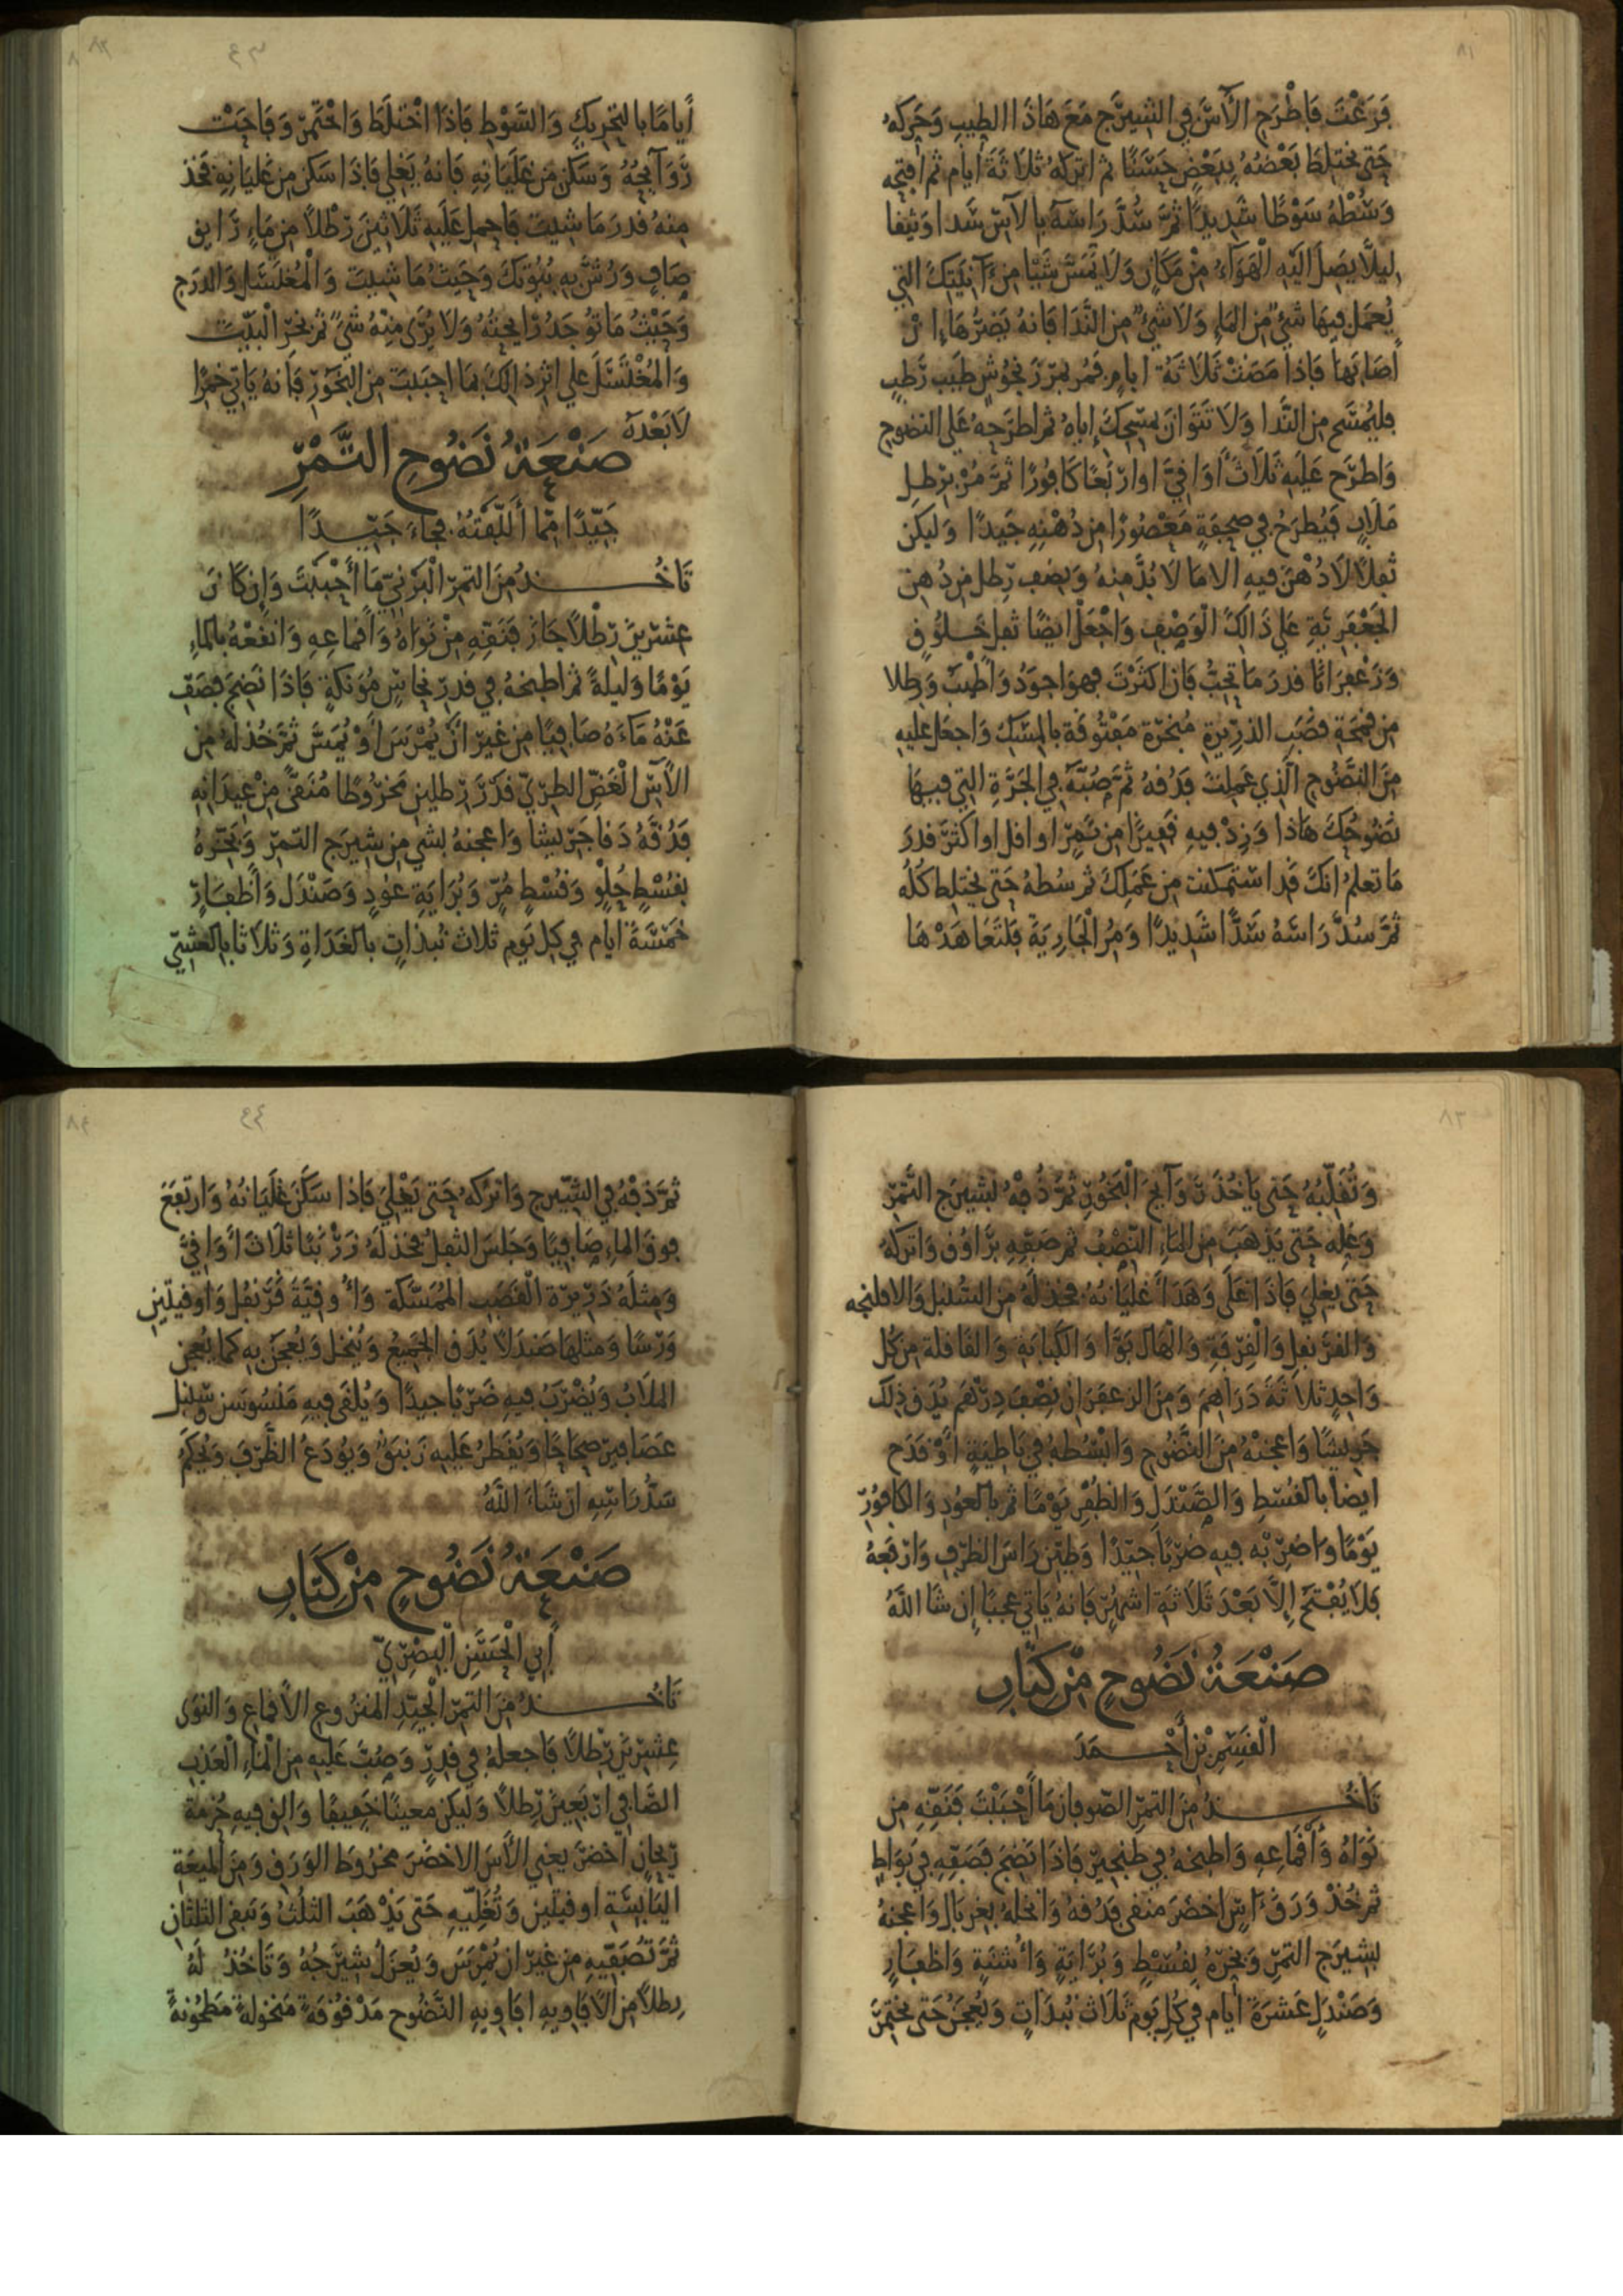 ٨١
فَرَغْتَ فَاطْرَحِ الْآسَ فِي الشِيرَجِ مَعَ هَاذَا الطِيبِ وَحَرِكهُ
حَتى يختلِطَ بَعْضُهُ بِبَعْضٍ حَسَنًا ثم اتركهُ ثلاثَةَ أيام ثم افتحه
وَسُطْهُ سَوْطًا شَدِيدًا ثمَّ سُدَّ رَاسَهُ بالآس شَدا وَثيقا
لِيلًا يصِلَ اليَهِ الْهَوَآءُ مِنْ مَكَانٍ وَلَا يمَسَّ شَيْا مِن آنِيَتِكَ التِي
يُعمَل فِيهَا شَيْءٌ مِن الماءِ وَلَا شَيْءٌ مِن النَدَا فَانهُ يَضُرُّهَا إِنْ
أصَابَهَا فَاذا مَضَتْ ثَلَاثَةُ ايامٍ فمُر بمرزنجُوشٍ طَيب رَطِب
فليُمسَح مِن النَّدا وَلَا تَتَوَانَ بمسحِكَ إياهُ ثم اطرَحهُ عَلى النضُوحِ
وَاطرَح عَلَيهِ ثَلَاثَ أوَاقِيَّ اوارْبَعًا كَافُورًا ثمَّ مُرْ برِطلِ
مَلَابٍ فَيُطرَحُ في صحفَةٍ مَعْصُورًا مِن دُهْنِهِ جَيدًا وَليَكن
ثفلًا لَادُهْنَ فيهِ الا مَا لَا بُدَّ مِنهُ وَنِصف رِطل مِن دُهن
الجَعْفَرِيَّةِ عَلى ذَالِكَ الْوَصْفِ وَاجْعَلْ ايضًا ثفل خَلُوقٍ
وَزعْفَرَانًا قدرَ مَا تحِبُّ فَان اكثَرْتَ فهوَ اجوَدُ وَأطْيَبُ وَرطلا
مِن قمحَةِ قصَبِ الذرِيرةِ مُبَخرّة مَفتُوقَة بالمِسْكِ وَاجعَل عَليهِ
مِنَ النضُوحِ الَّذِي عَملتَ قَدُقهُ ثمَّ صُبَّهُ في الجَرَّةِ التِي فيهَا
نضُوحُكَ هَاذا وَزِدْ فيهِ قَفيزًا مِن تَمرٍ او اقل او اكثرَ قدرَ
مَا تعلمُ انكَ قدِ استَمكنتَ مِن عَمَلِكَ ثم سُطهُ حَتى يختلِط كُلُّهُ
ثمَّ سُدَّ رَاسَهُ سَدًّا شَدِيدًا وَمُرِ الْجَارِيَةَ فَلتَعَاهَدْهَا
٨٢
٤٣
أيامًا بالتحرِيكِ وَالسَّوْطِ فَاذَا اخْتلَطَ وَاخْتَمَرَ وَفَاحَتْ
رَوَآيحُهُ وَسَكَنَ مِن غَلَيَانِهِ فَانهُ يَغلِي فَاذَا سَكن مِن غليَانِهِ فخُذ
مِنهُ قدرَ مَا شِيتَ فَاحمِل عَلَيهِ ثَلَاثِينَ رَطْلًا مِن مَاءٍ رَايق
صَافٍ وَرُشَّ بِهِ بُيُوتكَ وَحَيثُ مَا شِيتَ وَالْمُغتَسَل وَالدرَج
وَحَيْثُ مَا توُجَدُ رَايحَتُهُ وَلَا يُرَى مِنْهُ شَيءٌ ثم بَخرِ الْبَيْتَ
وَالْمُغْتَسَلَ عَلى اثرِ ذالِكَ بمَا احبَبتَ مِن البَخُورِ فَانهُ يَاتِي خمرًا
لَا بَعْدَهُ
صَنْعَةُ نَضُوحِ التَّمْرِ
جَيِّدًا مِمّا أَلَّفْتُهُ فجاءَ جَيِّدًا
تَاخُذُ مِنَ التمرِ الْبَرْنِيِّ مَا أَحْبَبْتَ وَإن كَانَ
عِشرِينَ رِطْلًا جَازَ فَنَقِّهِ مِنْ نَوَاهُ وَأقمَاعِهِ وَانقَعْهُ بالماءِ
يَوْمًا وَليلَةً ثم اطبخهُ في قِدرِ نحَاسٍ مُؤنكةٍ فَاذَا نَضِجَ فصَفِّ
عَنْهُ مَآءَهُ صَافِيًا مِن غَيرِ أنْ يُمْرَسَ أوْ يُمَسَّ ثمَّ خُذ لَهُ مِن
الآسِ الْغَضِّ الطرِيِّ قدرَ رِطلين مَخرُوطًا مُنَقًّى مِنْ عِيدَانِهِ
فَدُقَّهُ دَقا جَرِيشًا وَاعجنهُ بشَي مِن شِيرَجِ التمرِ وَبَخِّرهُ
بقُسْطٍ حُلْوٍ وَقُسْطٍ مُرٍّ وَبُرَايَةِ عوُدٍ وَصَنْدَل وَأظفَارٍ
خمسَةَ أيام في كل يَوم ثلاث نُبذاتٍ بالغَدَاةِ وَثلاثا بالعَشِيِّ
٨٣
وَتُقَلِّبُهُ حَتى يَاخُذَ رَوَآيحَ الْبَخُورِ ثمَّ دُفهُ بشيرَجِ التَّمْرِ
وَغلِه حَتى يَذهَبَ مِن الماءِ النِّصْفُ ثم صَفِّهِ برَاوُقٍ وَاترُكهُ
حَتى يَغلِيَ فَاذَا غَلَى وَهَدَأَ غَلَيَانُهُ فخُذ لَهُ مِن السُنبُل وَالافلنجه
وَالقرَنفل وَالْقِرْفَةِ وَالْهَال بَوَّا وَالكَبَابَةِ وَالقَاقلة مِن كُل
وَاحِدٍ ثلاثَةَ دَرَاهِمَ وَمِنَ الزعفَرَان نِصْفَ دِرْهَم يُدَق ذلِكَ
جَرِيشًا وَاعجنْهُ مِنَ النَّضُوحِ وَابْسُطهُ في بَاطِيَةٍ أوْ قدَح
ايضاً بالقُسْطِ وَالصَّنْدَلِ وَالظفْرِ يَوْمًا ثم بالعُودِ وَالكافوُرِ
يَوْمًا وَاضرِبْهِ فيهِ ضرْبًا جَيِّدًا وَطَيِّن رَاسَ الظرْفِ وَارْفَعهُ
فلَا يُفْتَح إلَّا بَعْدَ ثَلَاثةِ اشهُرٍ فَانهُ يَاتِي عجَبًا إن شَا اللَّهُ
صَنْعَةُ نَضُوحٍ مِنْ كِتَابِ
الْقَسِمِ بْنِ أَحْمَدَ
تَاخُذُ مِنَ التمرِ الصّرفان مَا أَحْبَبْتَ فَنَقِّهِ مِن
نَوَاهُ وَأَقْمَاعِهِ وَاطبخهُ في طنجيرٍ فَاذَا نَضِجَ فَصَفِّهِ في بَوَاطٍ
ثم خُذْ وَرَقَ آسٍ اخضَرَ مُنَقى فدُقهُ وَانخلهُ بغربَال وَاعجنهُ
بشِيرَجِ التمرِ وَبخِّرْهُ بقُسْطٍ وَبُرَايَةٍ وَأُشنَةٍ وَاظفَارٍ
وَصَنْدَلٍ عَشرَةَ أيام في كُل يَوم ثَلَاثَ نُبذاتٍ وَيُعجَنُ حَتى يختَمِرَ
٨٤
٤٤
ثمَّ دُفْهُ في الشِّيرج وَاترُكه حَتى يَغْلِيَ فَاذا سَكَنَ غَلَيَانُهُ وَارتفَعَ
فوقَ الماءِ صَافِيًا وَجَلسَ الثفلُ فخذ لَهُ زَرْنَبًا ثلَاثَ أوَاقِيَّ
وَمِثلَهُ ذَرِيرَة الْقصَبِ المُمَسَّكَة وَأُوقيَّةَ قَرَنفُل وَأوقيتَين
وَرْسًا وَمثلهَا صَندَلًا يُدَق الجَمِيعُ وَيُنخل وَيُعجَن بِهِ كمَا يُعجن
المَلَابُ وَيُضرَبُ فيهِ ضَرْبًا جيدًا وَيُلقى فيهِ مَلسُوسَن سُنبل
عَصَافير صحَاحًا وَيُقطَرُ عَلَيهِ زَنبَقٌ وَيُودَعُ الظَّرْفَ وَيُحكَمُ
سَدُّ رَاسِهِ ان شَاءَ اللَّهُ
صَنْعَةُ نَضُوحٍ مِنْ كِتَابِ
أبِي الْحَسَنِ الْبصْرِيِّ
تَاخُذُ مِنَ التمرِ الْجَيِّدِ المنزُوعِ الأقماعِ وَالنوَى
عِشرِينَ رِطْلًا فَاجعلهُ في قِدرٍ وَصُبَّ عَليهِ مِن الْمَاءِ الْعَذبِ
الصَّافي ارْبَعِينَ رِطلًا وَليَكن مَعينًا خفيفًا وَالق فيهِ حُزمَةَ
رَيحَانٍ أخضَرَ يَعنِي الآسَ الاخضَرَ مخرُوطَ الوَرَق وَمِنَ الميعَةِ
اليَابِسَةِ اوقيتَين وَتُغَلِّيهِ حَتى يَذْهَبَ الثلُثُ وَيَبقى الثلثَان
ثمَّ تُصَفِّيهِ مِن غيرِ ان يُمْرَسَ وَيُعزَلُ شيرَجُهُ وَتَاخُذُ لَهُ
رطلًا مِن الأفَاوِيهِ افَاوِيهِ النَّضُوح مَدْقُوقَةً مَنخولةً مَطحُونةً